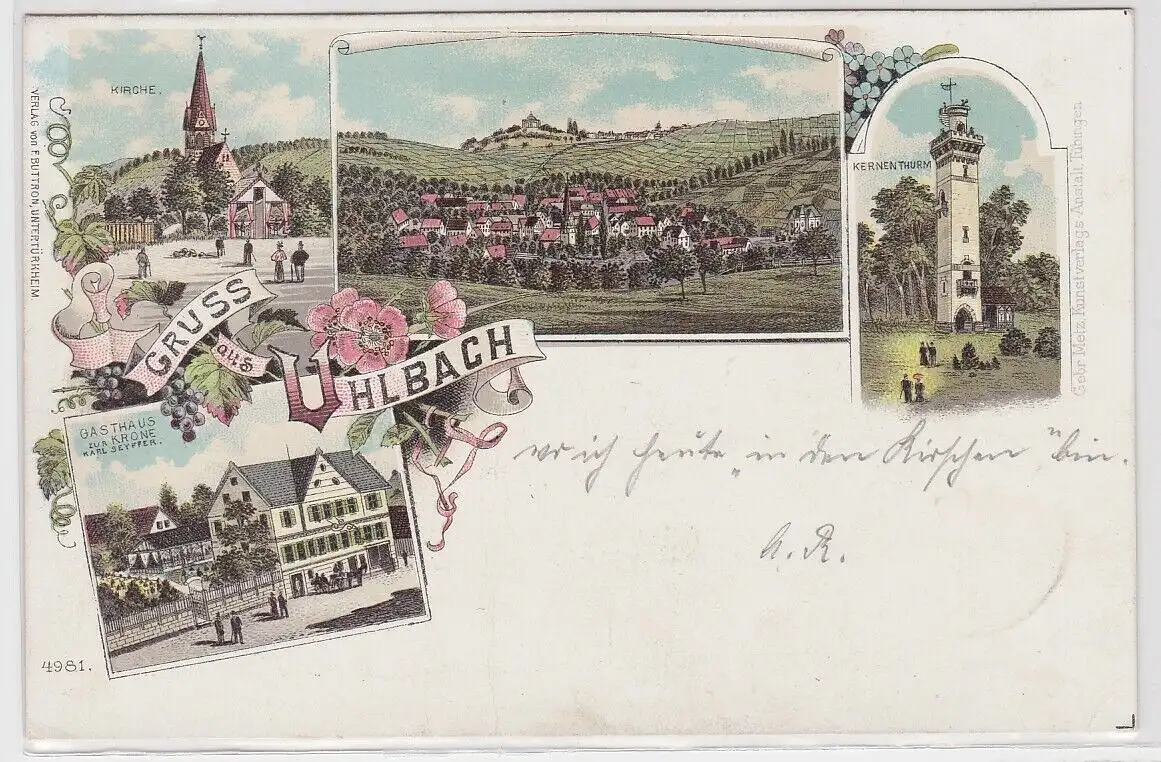 KIRCHE.
VERLAG von F. BUTTRON, UNTERTÜRKHEIM
KERNENTHURM
Gebr. Metz, Kunstverlags-Anstalt, Tübingen
GRUSS
aus
UHLBACH
GASTHAUS
ZUR KRONE
KARL SEYFFER.
wo ich heute „in den Kirschen" bin.
A. R.
4981.